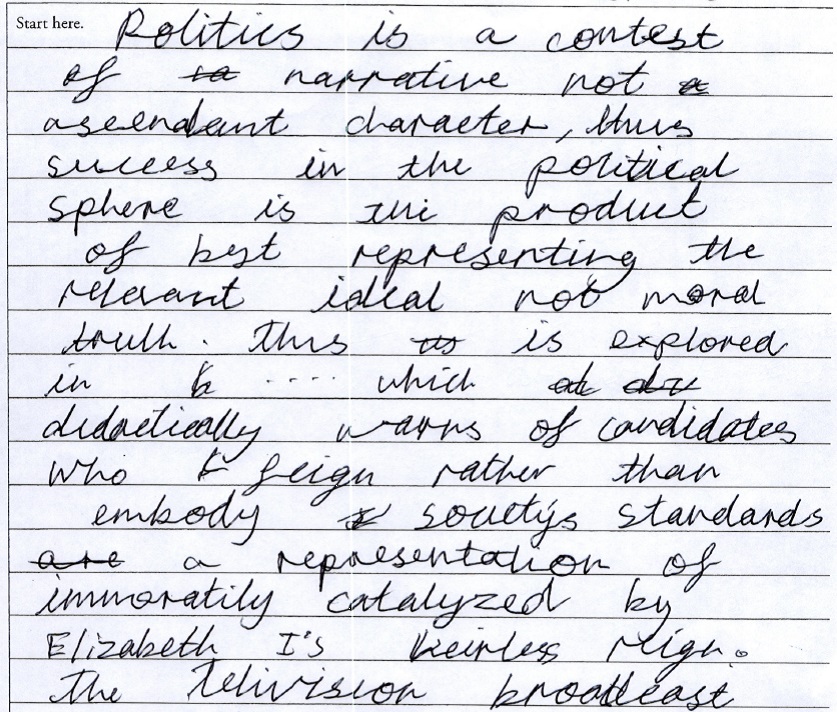 Start here.
Politics is a contest
of narrative not
ascendant character, thus
success in the political
sphere is the product
of best representing the
relevant ideal not moral
truth. This is explored
in ..... which
didactically warns of candidates
who feign rather than
embody society's standards
are a representation of
immoratily catalyzed by
Elizabeth I's heirless reign.
The telivision broadcast